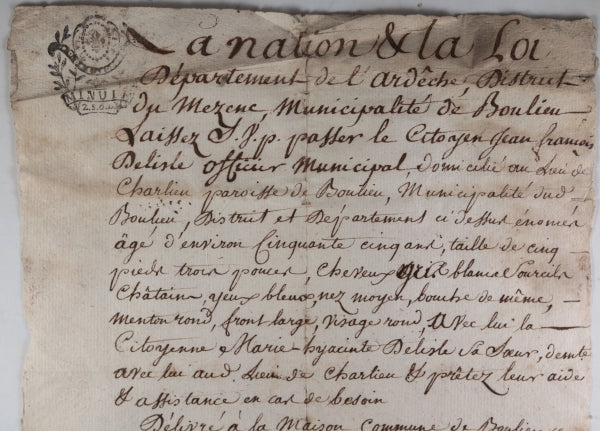 MINUIT
2.S.6.D
La nation & la Loi
Département de l'ardêche, District
du Mezenc, Municipalité de Boulieu
Laissez S. V. p. passer le Citoyen Jean françois
Delisle officier Municipal, domicilié au Lieu de
Charlieu paroisse de Boulieu, Municipalité dud.
Boulieu, District et Département ci dessus énomés
âgé d'environ Cinquante cinq ans, taille de cinq
pieds trois pouces, cheveux gris blancs Sourcils
Châtains, yeux bleus, nez moyen, bouche de même,
menton rond, front large, visage rond, Avec lui la
Citoyenne Marie hyacinte Delisle Sa Sœur, demte
avec lui aud. Lieu de Charlieu & prêtez leur aide
& assistance en cas de besoin
Délivré à la Maison Commune de Boulieu